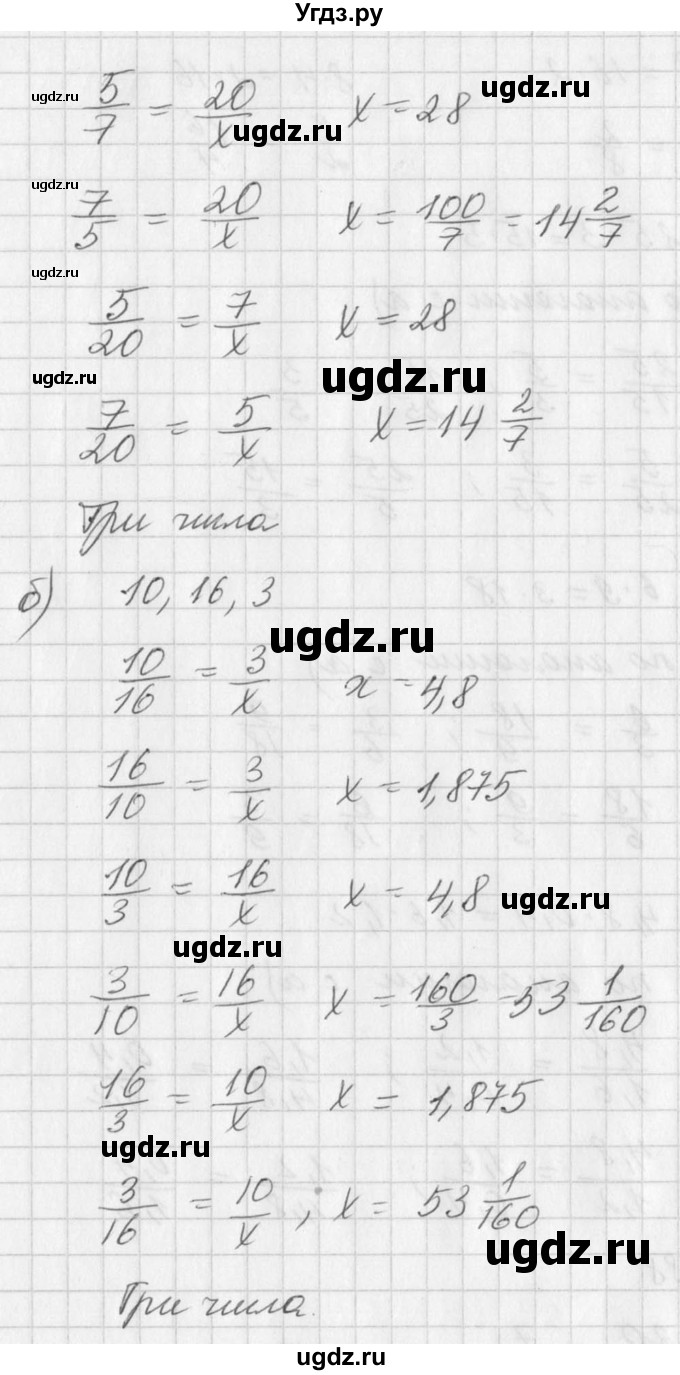 Угдз.ру
ugdz.ru
5/7 = 20/x   x = 28   ugdz.ru
ugdz.ru
ugdz.ru
7/5 = 20/x   x = 100/7 = 14 2/7
ugdz.ru
5/20 = 7/x   x = 28
ugdz.ru   ugdz.ru
7/20 = 5/x   x = 14 2/7
Три числа
б) 10, 16, 3
ugdz.ru
10/16 = 3/x   x = 4,8
16/10 = 3/x   x = 1,875
10/3 = 16/x   x = 4,8   ugdz.ru
ugdz.ru
3/10 = 16/x   x = 160/3 = 53 1/160
16/3 = 10/x   x = 1,875
ugdz.ru
3/16 = 10/x ; x = 53 1/160
ugdz.ru
Три числа.
ugdz.ru